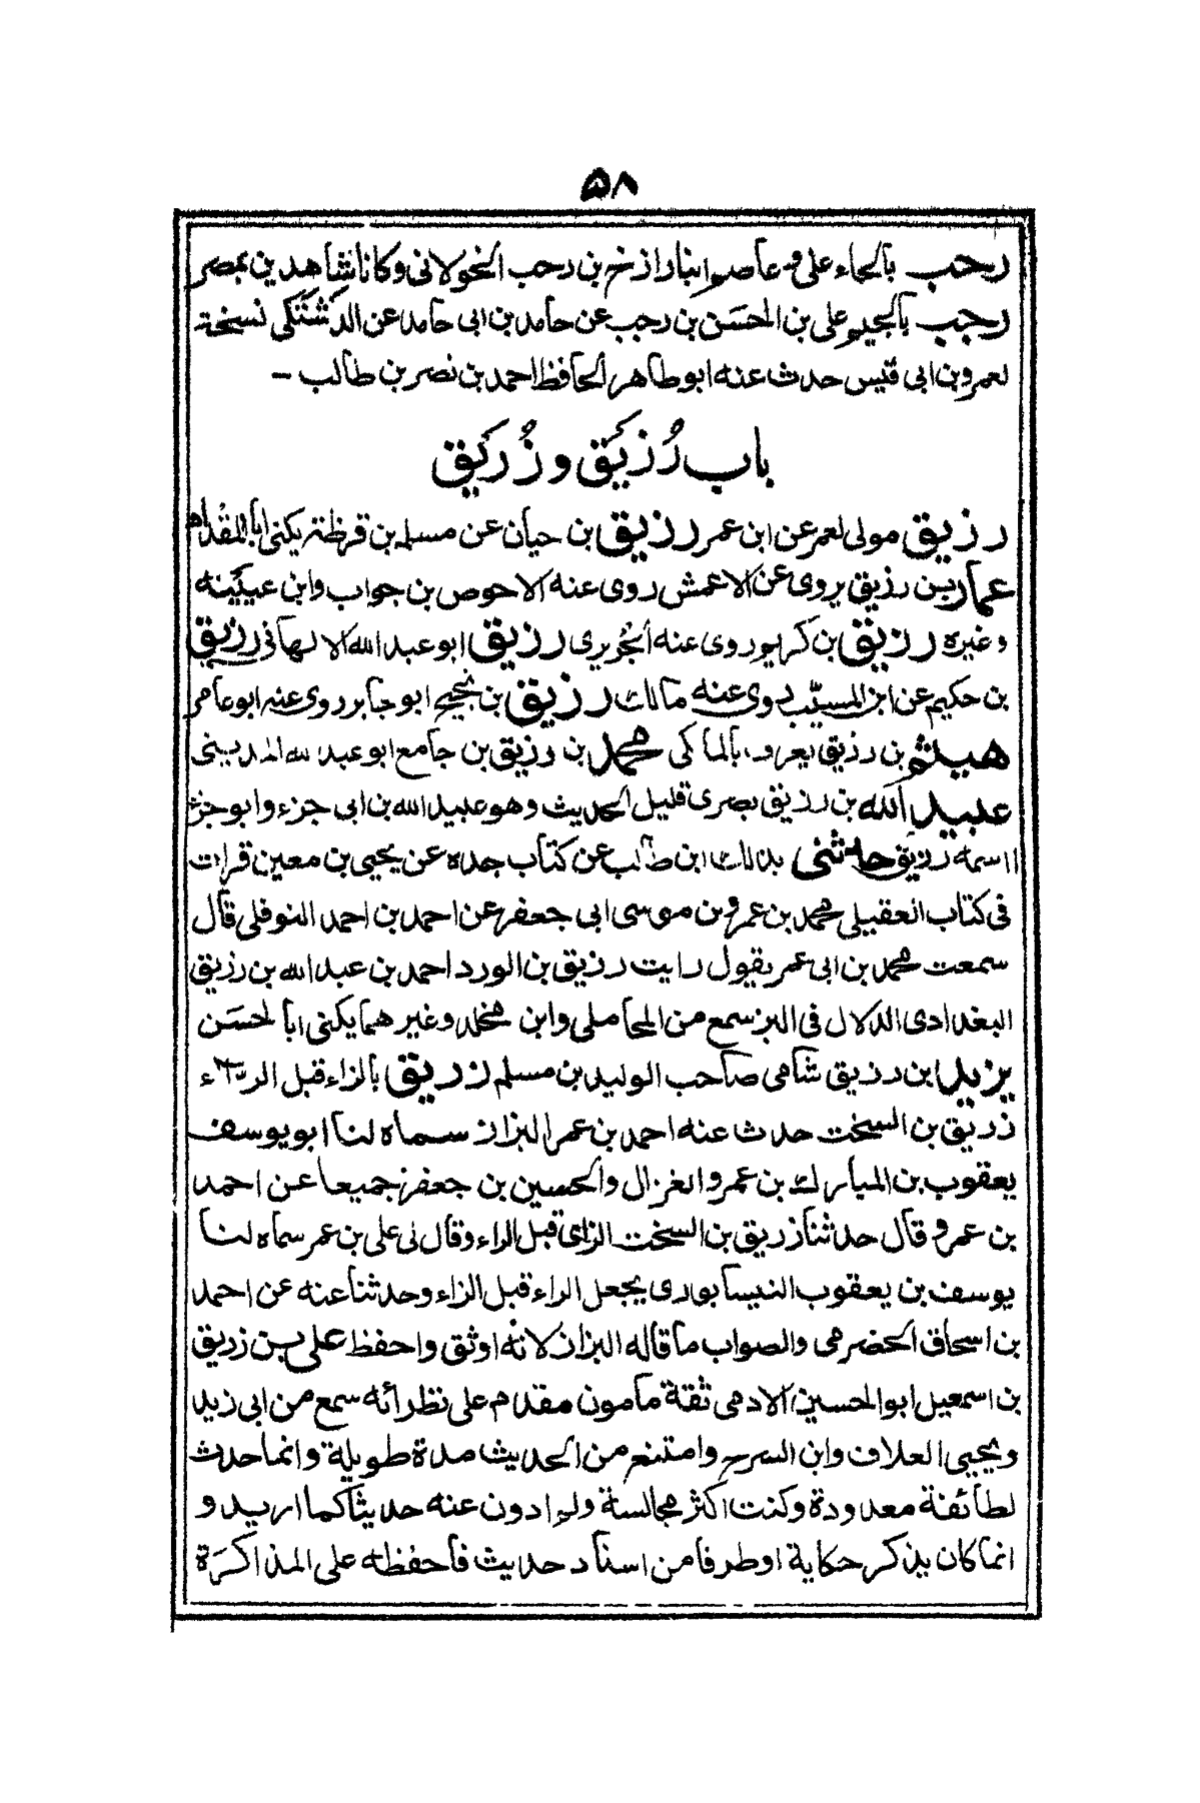 ۵۸
رحب بالحاء علی و عاصم ابنا رازخ بن رحب الخولانی و کانا شاهدین بمصر
رجب بالجیم علی بن الحسن بن رجب عن حامد بن ابی حامد عن الدشتکی نسخة
لعمرو بن ابی قیس حدث عنه ابو طاهر الحافظ احمد بن نصر بن طالب –
باب رُزَیق و زُرَیق
رزیق مولی لعمر عن ابن عمر رزیق بن حیان عن مسلم بن قرظة یکنی ابا المقدام
عمار بن رزیق یروی عن الاعمش روی عنه الاحوص بن جواب وابن عیینه
و غیره رزیق بن کریم روی عنه الجُریری رزیق ابو عبد الله الالهانی رزیق
بن حکیم عن ابن المسیّب روی عنه مالك رزیق بن نجیح ابو جابر روی عنه ابو عامر
هیثم بن رزیق یعرف بالمالکی محمد بن رزیق بن جامع ابو عبد الله المدینی
عبید الله بن رزیق بصری قلیل الحدیث وهو عبید الله بن ابی جزء وابو جزء
اسمه رزیق حدثنی بذلك ابن طالب عن کتاب جده عن یحیی بن معین قرات
فی کتاب العقیلی محمد بن عمرو بن موسی ابی جعفر عن احمد بن احمد النوفلی قال
سمعت محمد بن ابی عمر یقول رایت رزیق بن الورد احمد بن عبد الله بن رزیق
البغدادی الدلال فی البز سمع من المحاملی وابن مخلد وغیر همایکنی ابا الحسن
یزید ابن رزیق شامی صاحب الولید بن مسلم زریق بالزاء قبل الراء
زریق بن السخت حدث عنه احمد بن عمر البزاز سماه لنا ابو یوسف
یعقوب بن المبارك بن عمرو الغزال والحسین بن جعفر جمیعا عن احمد
بن عمرو قال حدثنا زریق بن السخت الزای قبل الراء وقال لی علی بن عمر سماه لنا
یوسف بن یعقوب النیسابوری یجعل الراء قبل الزاء وحدثنا عنه عن احمد
بن اسحاق الحضرمی والصواب ما قاله البزاز لانه اوثق واحفظ علی بن زریق
بن اسمعیل ابو الحسین الادمی ثقة مامون مقدام علی نظرائه سمع من ابی زید
ویحیی العلاف وابن السرح وامتنع من الحدیث مدة طویلة وانما حدث
لطائفة معدودة وکنت اکثر مجالسة ولم ادون عنه حدیثا کما ارید و
انما کان یذکر حکایة او طرفا من اسناد حدیث فاحفظه علی المذاکرَة